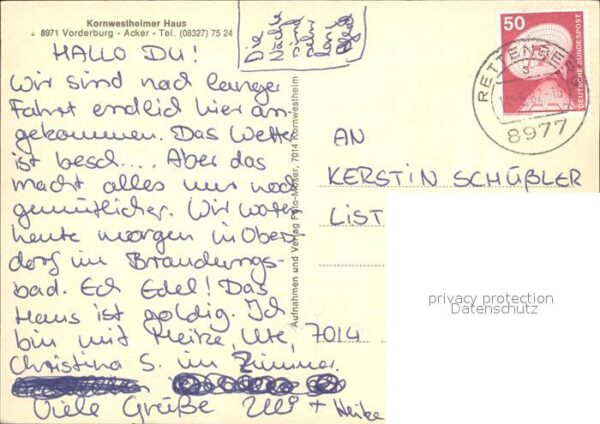 Kornwestheimer Haus
8971 Vorderburg - Acker - Tel. (08327) 75 24
Die
Nächte
sind
sehr
lang
HALLO DU!
Wir sind nach langer
Fahrt endlich hier an-
gekommen. Das Wetter
ist besch.... Aber das
macht alles nur noch
gemütlicher. Wir waren
heute morgen in Oberst
dorf im Brandungs-
bad. Ech Edel! Das
Haus ist goldig. Ich
bin mit Heike, Ute,
Christina S. im Zimmer.
Viele Grüße Uli + Heike
Aufnahmen und Verlag Foto-Moser, 7014 Kornwestheim
50
DEUTSCHE BUNDESPOST
RETTENBERG
8977
AN
KERSTIN SCHÜßLER
LIST
7014
privacy protection
Datenschutz